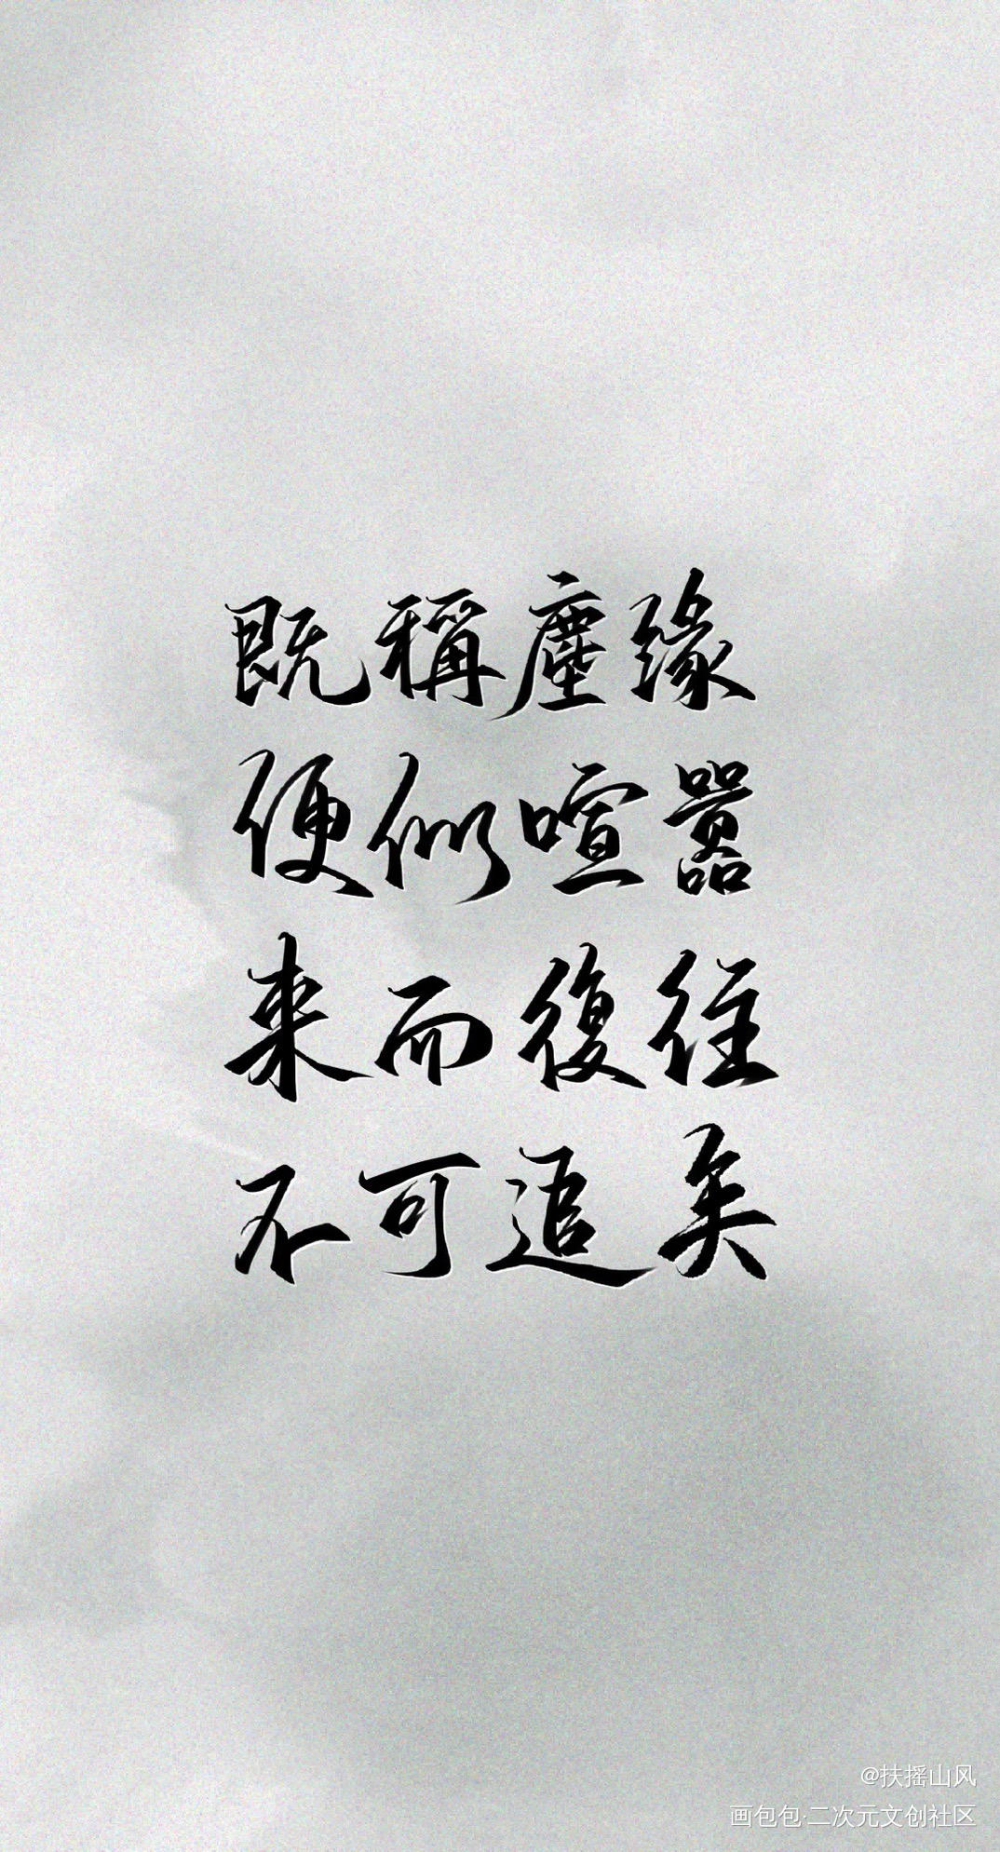 既稱塵缘
便似喧嚣
来而復往
不可追矣
@扶摇山风
画包包·二次元文创社区